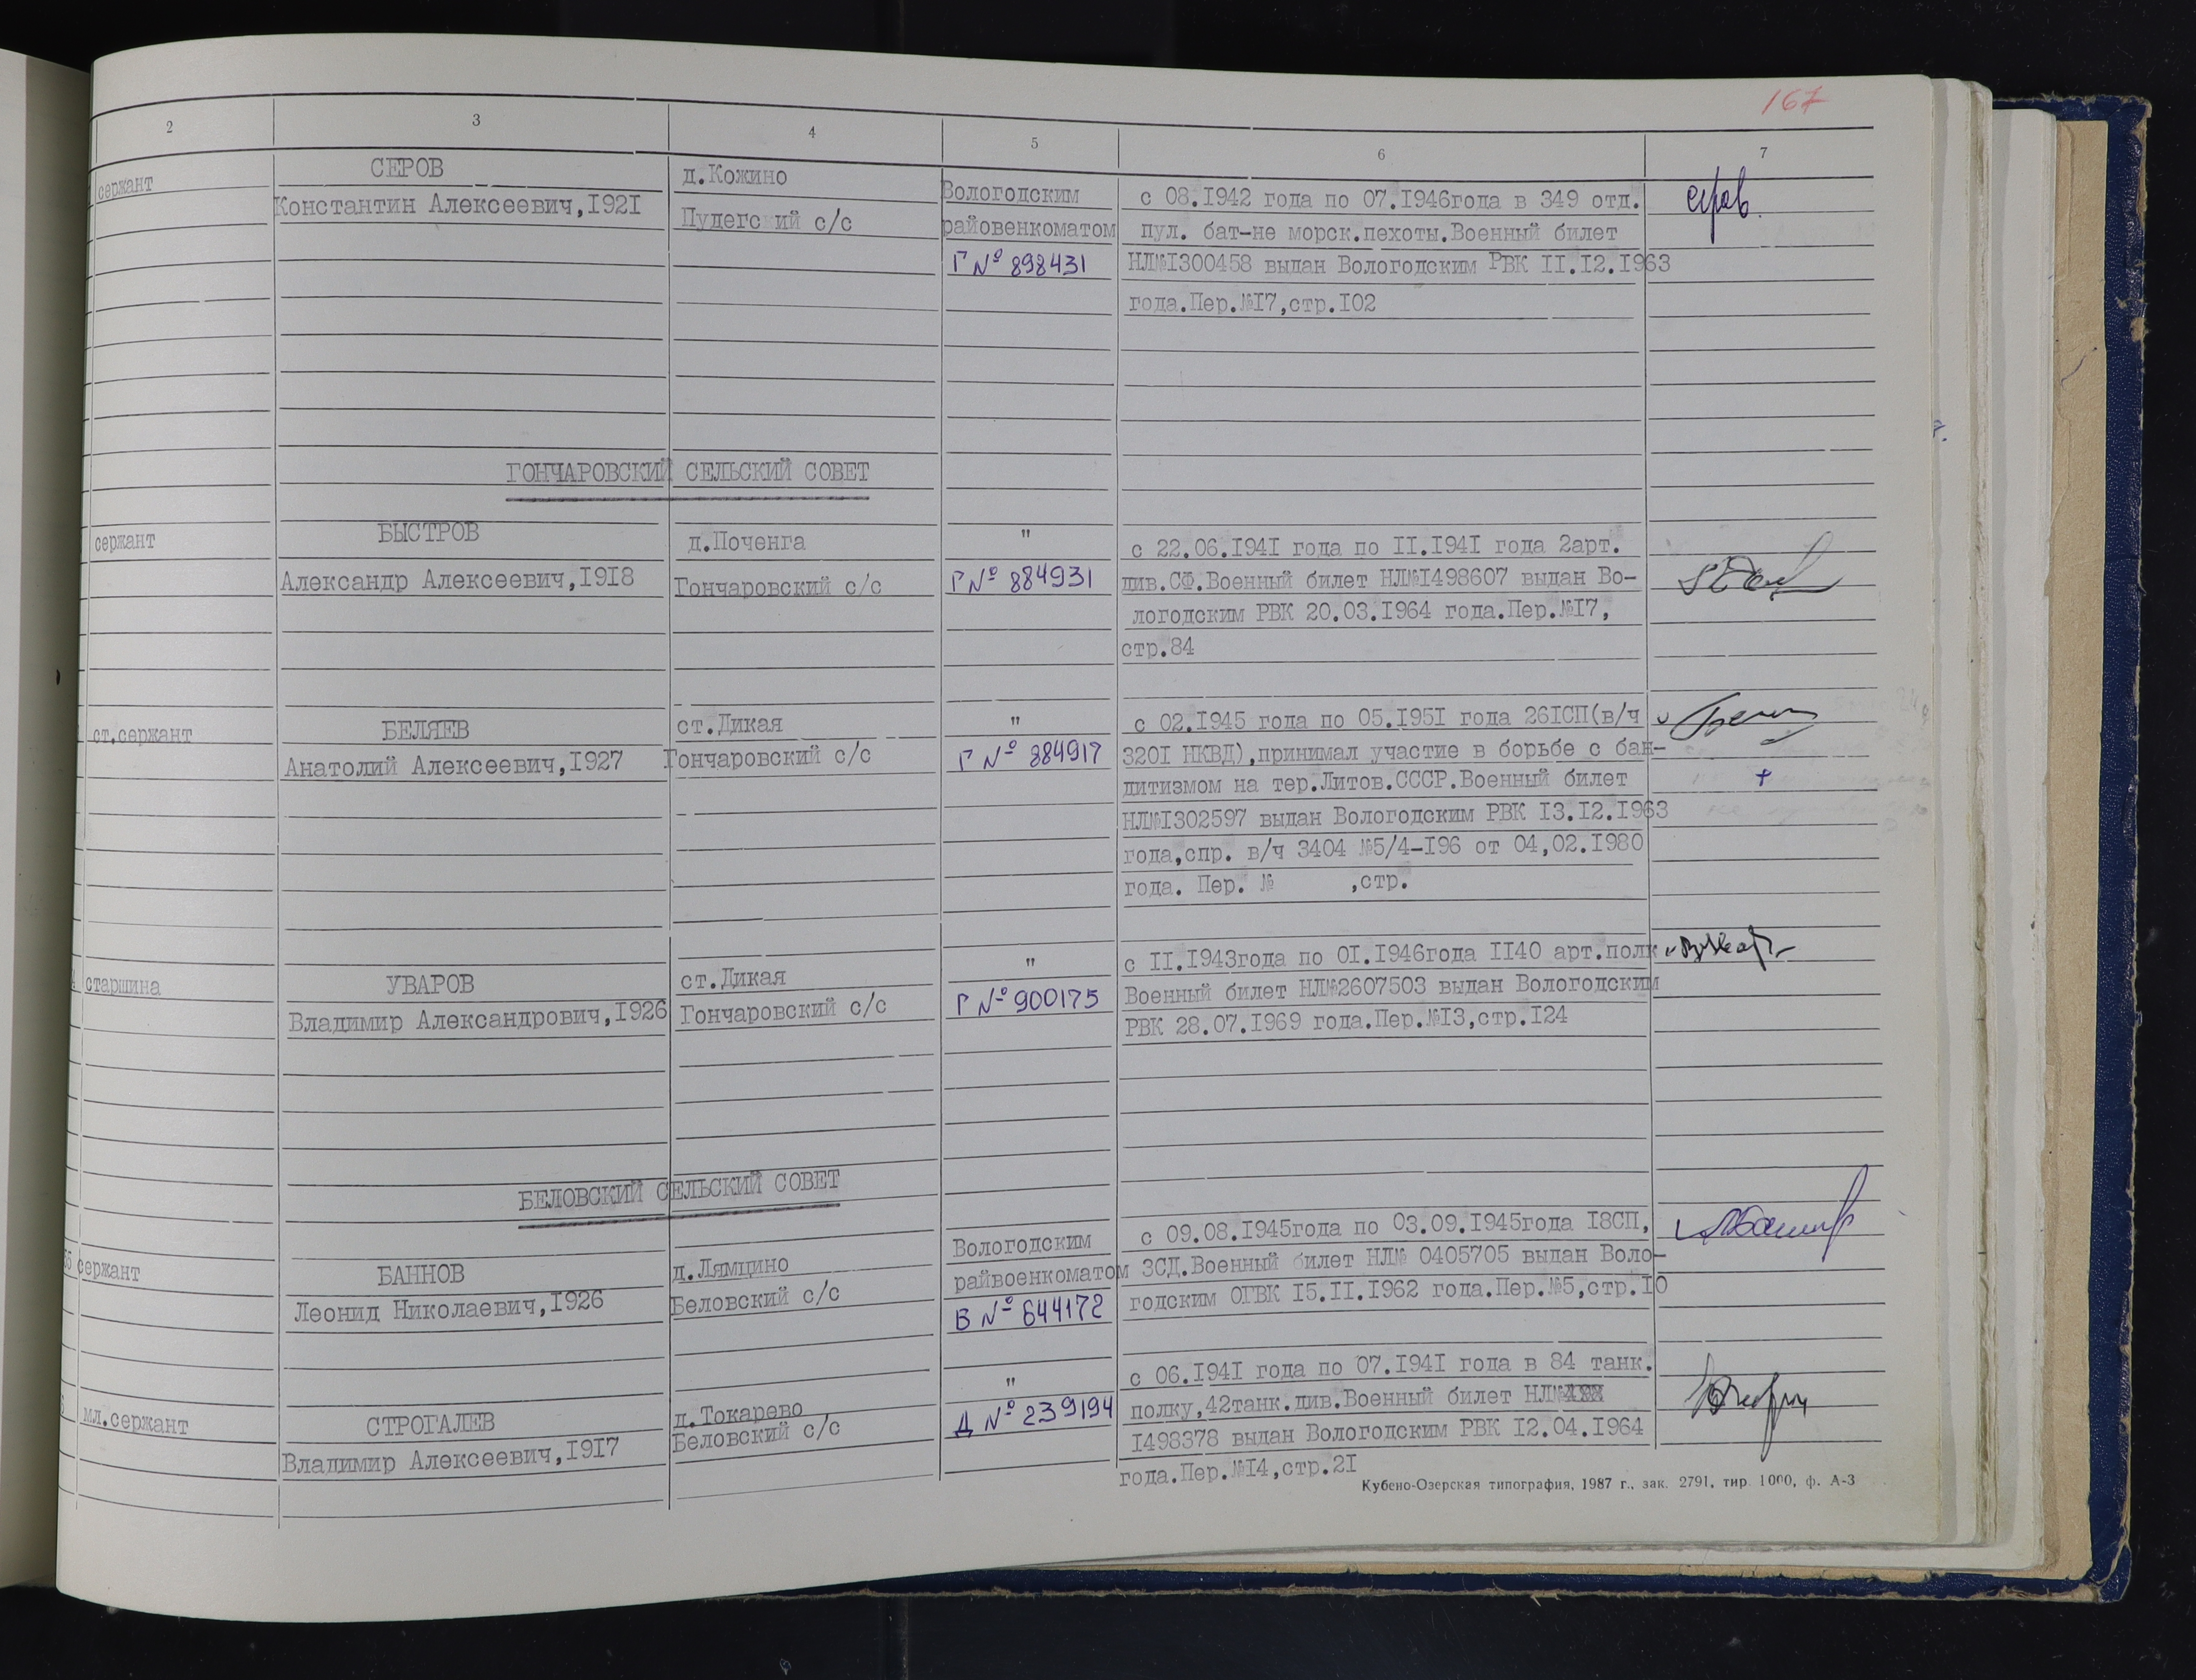 167
2 3 4 5 6 7
сержант
СЕРОВ
Константин Алексеевич,I92I
д.Кожино
Пудегский с/с
Вологодским
райовенкоматом
Г № 898431
с 08.I942 года по 07.I946года в 349 отд.
пул. бат-не морск.пехоты.Военный билет
НЛ№I300458 выдан Вологодским РВК II.I2.I963
года.Пер.№I7,стр.I02
ГОНЧАРОВСКИЙ СЕЛЬСКИЙ СОВЕТ
сержант
БЫСТРОВ
Александр Алексеевич,I9I8
д.Поченга
Гончаровский с/с
"
Г № 884931
с 22.06.I94I года по II.I94I года 2арт.
див.СФ.Военный билет НЛ№I498607 выдан Во-
логодским РВК 20.03.I964 года.Пер.№I7,
стр.84
ст.сержант
БЕЛЯЕВ
Анатолий Алексеевич,I927
ст.Дикая
Гончаровский с/с
"
Г № 884917
с 02.I945 года по 05.I95I года 26IСП(в/ч
320I НКВД),принимал участие в борьбе с бан-
дитизмом на тер.Литов.СССР.Военный билет
НЛ№I302597 выдан Вологодским РВК I3.I2.I963
года,спр. в/ч 3404 №5/4-I96 от 04,02.I980
года. Пер. № ,стр.
+
старшина
УВАРОВ
Владимир Александрович,I926
ст.Дикая
Гончаровский с/с
"
Г № 900175
с II.I943года по 0I.I946года II40 арт.полк
Военный билет НЛ№2607503 выдан Вологодским
РВК 28.07.I969 года.Пер.№I3,стр.I24
БЕЛОВСКИЙ СЕЛЬСКИЙ СОВЕТ
сержант
БАННОВ
Леонид Николаевич,I926
д.Лямцино
Беловский с/с
Вологодским
райвоенкоматом
В № 644172
с 09.08.I945года по 03.09.I945года I8СП,
ЗСД.Военный билет НЛ№ 0405705 выдан Воло-
годским ОГВК I5.II.I962 года.Пер.№5,стр.I0
мл.сержант
СТРОГАЛЕВ
Владимир Алексеевич,I9I7
д.Токарево
Беловский с/с
"
Д № 239194
с 06.I94I года по 07.I94I года в 84 танк.
полку,42танк.див.Военный билет НЛ№
I498378 выдан Вологодским РВК I2.04.I964
года.Пер.№I4,стр.2I
Кубено-Озерская типография, 1987 г., зак. 2791, тир. 1000, ф. А-3